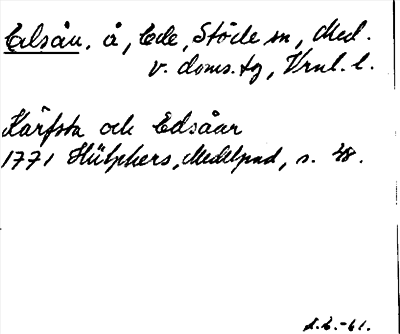 Edsån, å, Ede, Stöde sn, Med.
v. doms.tg, Vrnl. l.
Kärfsta och Edsåar
1771 Hülphers, Medelpad, s. 48.
S.B.-61.